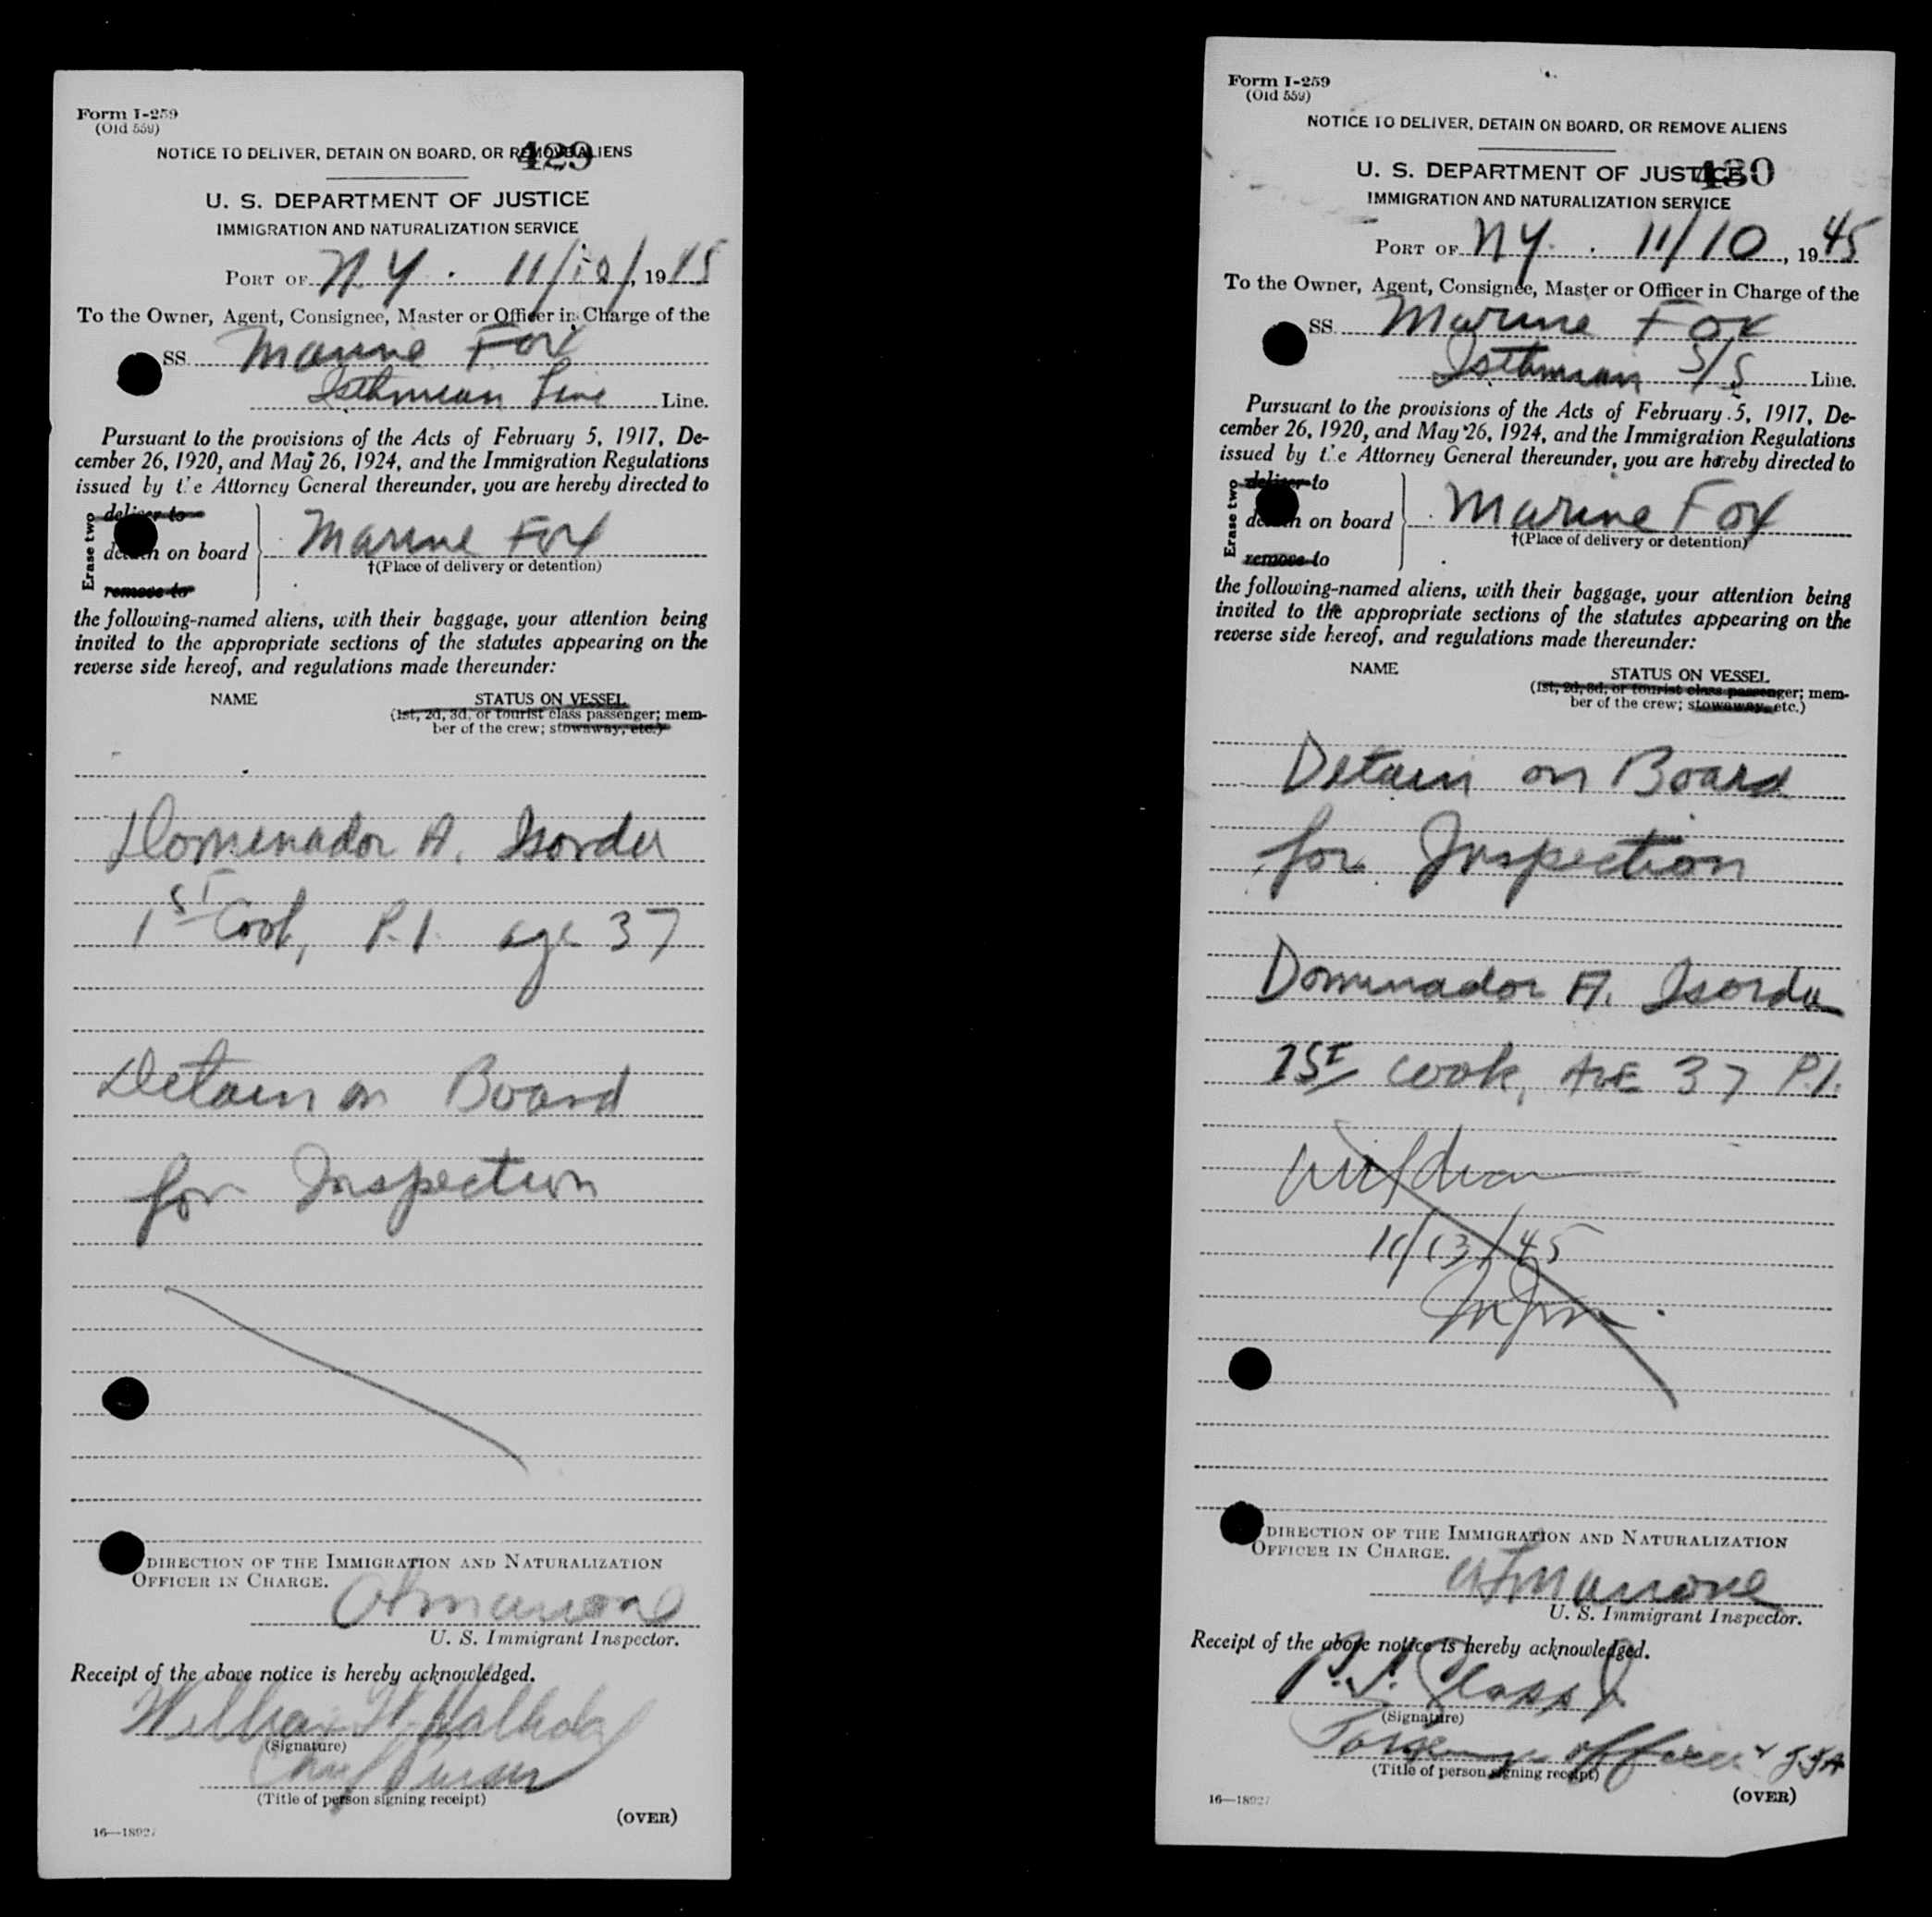 Form I-259
(Old 559)
NOTICE TO DELIVER, DETAIN ON BOARD, OR REMOVE ALIENS
429
U. S. DEPARTMENT OF JUSTICE
IMMIGRATION AND NATURALIZATION SERVICE
PORT OF N.Y. 11/10/, 1945
To the Owner, Agent, Consignee, Master or Officer in Charge of the
SS. Marine Fox
Isthmian Line Line.
Pursuant to the provisions of the Acts of February 5, 1917, De-
cember 26, 1920, and May 26, 1924, and the Immigration Regulations
issued by the Attorney General thereunder, you are hereby directed to
Erase two
deliver to
detain on board Marine Fox
†(Place of delivery or detention)
remove to
the following-named aliens, with their baggage, your attention being
invited to the appropriate sections of the statutes appearing on the
reverse side hereof, and regulations made thereunder:
NAME STATUS ON VESSEL
(1st, 2d, 3d, or tourist class passenger; mem-
ber of the crew; stowaway, etc.)
Domenador A. Isorda
1ST Cook, P.I. age 37
Detain on Board
for Inspection
DIRECTION OF THE IMMIGRATION AND NATURALIZATION
OFFICER IN CHARGE.
U. S. Immigrant Inspector.
Receipt of the above notice is hereby acknowledged.
William H. Halliday
(Signature)
Chief Purser
(Title of person signing receipt)
(OVER)
16—18927
Form I-259
(Old 559)
NOTICE TO DELIVER, DETAIN ON BOARD, OR REMOVE ALIENS
430
U. S. DEPARTMENT OF JUSTICE
IMMIGRATION AND NATURALIZATION SERVICE
PORT OF NY. 11/10, 1945
To the Owner, Agent, Consignee, Master or Officer in Charge of the
SS. Marine Fox
Isthmian S/S Line.
Pursuant to the provisions of the Acts of February 5, 1917, De-
cember 26, 1920, and May 26, 1924, and the Immigration Regulations
issued by the Attorney General thereunder, you are hereby directed to
Erase two
deliver to
detain on board Marine Fox
†(Place of delivery or detention)
remove to
the following-named aliens, with their baggage, your attention being
invited to the appropriate sections of the statutes appearing on the
reverse side hereof, and regulations made thereunder:
NAME STATUS ON VESSEL
(1st, 2d, 3d, or tourist class passenger; mem-
ber of the crew; stowaway, etc.)
Detain on Board
for Inspection
Dominador A. Isorda
1ST Cook, AGE 37 P.I.
11/13/45
DIRECTION OF THE IMMIGRATION AND NATURALIZATION
OFFICER IN CHARGE.
U. S. Immigrant Inspector.
Receipt of the above notice is hereby acknowledged.
(Signature)
officer
(Title of person signing receipt)
(OVER)
16—18927